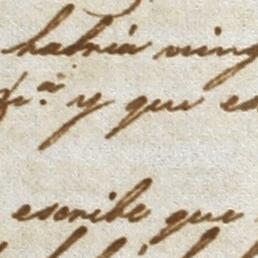 habria ning
y que es
escribe que